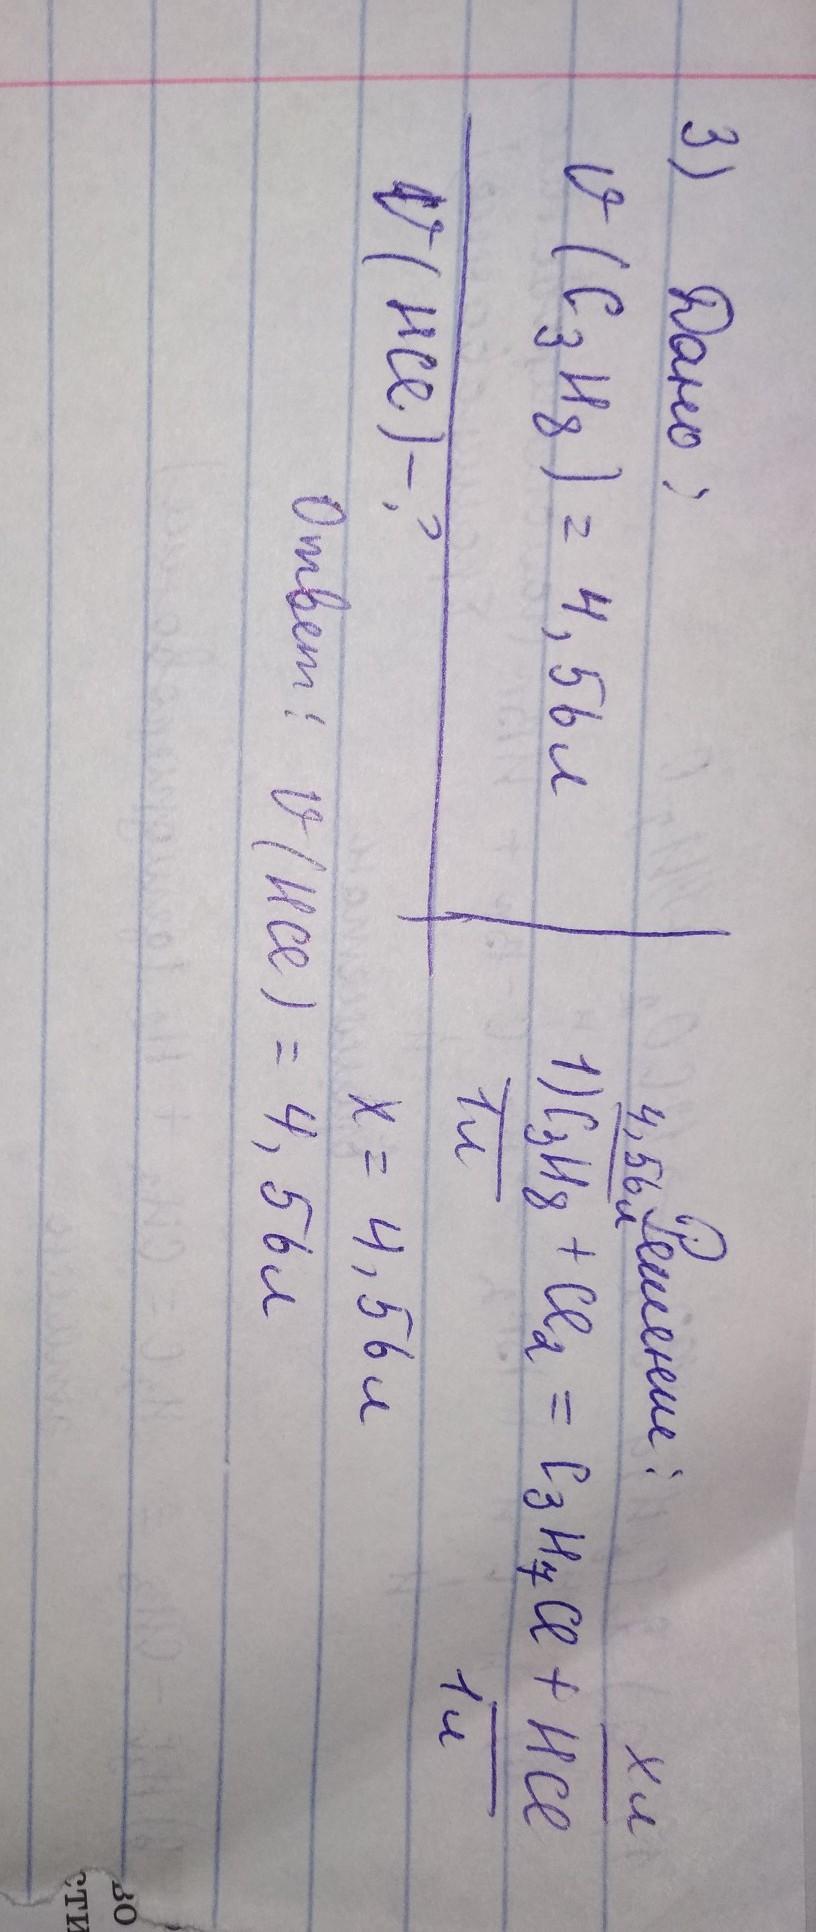 3) Дано:
V(C3H8) = 4,56 л
V(HCl) - ?
Решение:
4,56 л
x л
1) C3H8 + Cl2 = C3H7Cl + HCl
1л
1л
x = 4,56 л
Ответ: V(HCl) = 4,56 л
во
сти